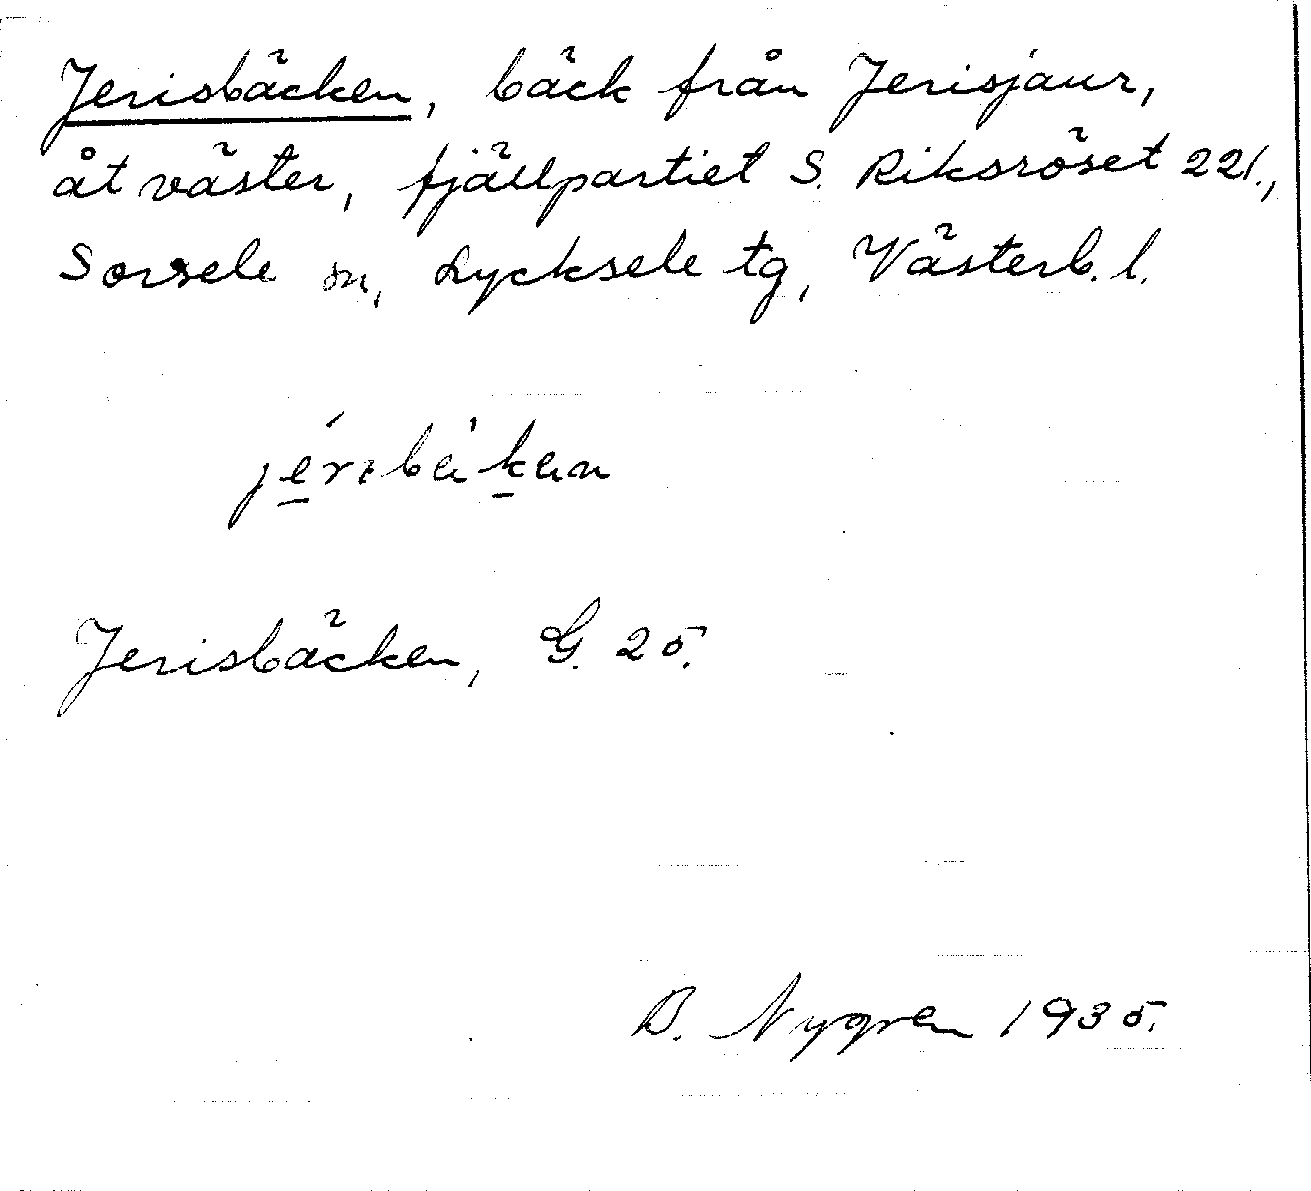 Jerisbäcken, bäck från Jerisjaur,
åt väster, fjällpartiet S. Riksröset 221.,
Sorsele sn, Lycksele tg, Västerb. l.
Jerisbäcken, G. 25.
B. Nygren 1935.